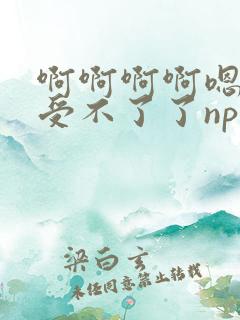 啊啊啊啊嗯
受不了了np
梁白玄
未经同意禁止转载